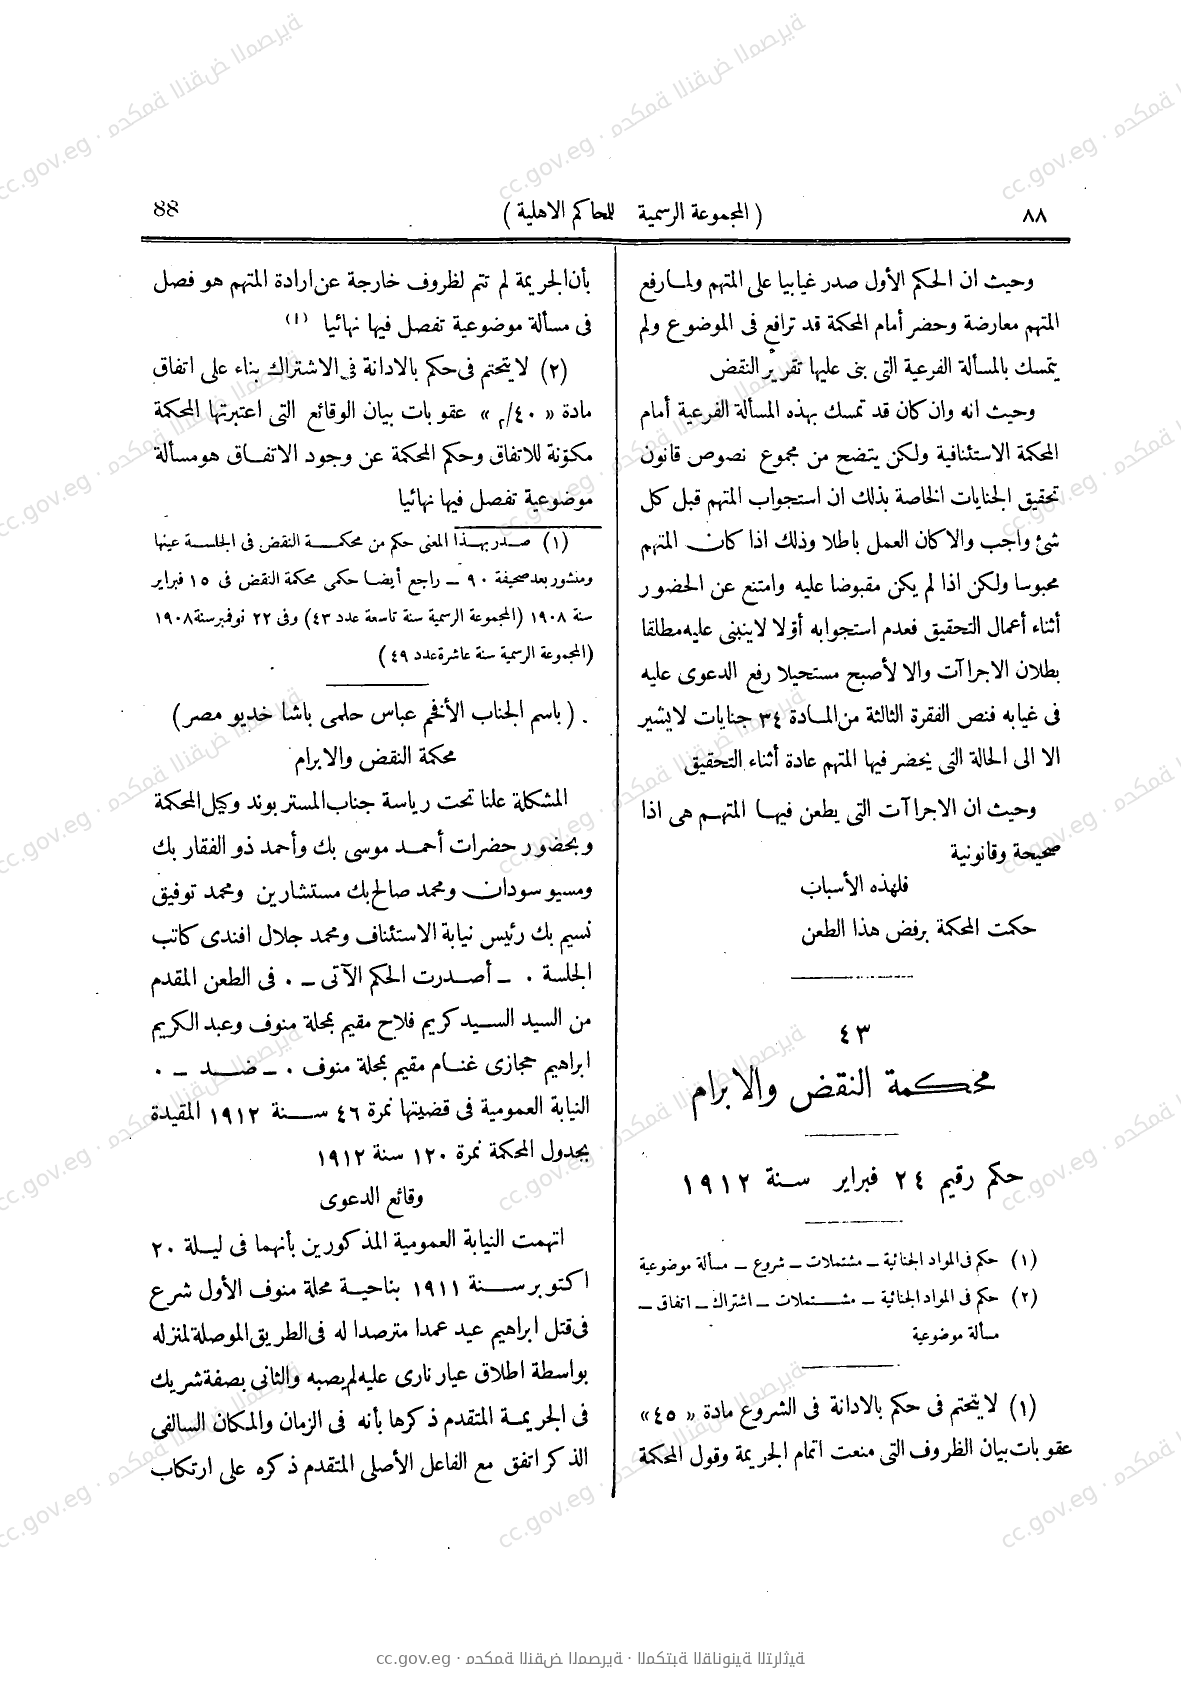 ٨٨
( المجموعة الرسمية للمحاكم الاهلية )
88
وحيث ان الحكم الأول صدر غيابيا على المتهم ولما رفع
المتهم معارضة وحضر أمام المحكمة قد ترافع فى الموضوع ولم
يتمسك بالمسألة الفرعية التى بنى عليها تقرير النقض
وحيث انه وان كان قد تمسك بهذه المسألة الفرعية أمام
المحكمة الاستئنافية ولكن يتضح من مجموع نصوص قانون
تحقيق الجنايات الخاصة بذلك ان استجواب المتهم قبل كل
شئ واجب والا كان العمل باطلا وذلك اذا كانت المتهم
محبوسا ولكن اذا لم يكن مقبوضا عليه وامتنع عن الحضور
أثناء أعمال التحقيق فعدم استجوابه أوّلا لا ينبنى عليه مطلقا
بطلان الاجراآت والا لأصبح مستحيلا رفع الدعوى عليه
فى غيابه فنص الفقرة الثالثة من المادة ٣٤ جنايات لا يشير
الا الى الحالة التى يحضر فيها المتهم عادة أثناء التحقيق
وحيث ان الاجراآت التى يطعن فيها المتهم هى اذا
صحيحة وقانونية
فلهذه الأسباب
حكمت المحكمة برفض هذا الطعن
٤٣
محكمة النقض والابرام
حكم رقيم ٢٤ فبراير سنة ١٩١٢
(١) حكم فى المواد الجنائية ــ مشتملات ــ شروع ــ مسألة موضوعية
(٢) حكم فى المواد الجنائية ــ مشتملات ــ اشتراك ــ اتفاق ــ
مسألة موضوعية
(١) لا يتحتم فى حكم بالادانة فى الشروع مادة « ٤٥ »
عقوبات بيان الظروف التى منعت اتمام الجريمة وقول المحكمة
بأن الجريمة لم تتم لظروف خارجة عن ارادة المتهم هو فصل
فى مسألة موضوعية تفصل فيها نهائيا (١)
(٢) لا يتحتم فى حكم بالادانة فى الاشتراك بناء على اتفاق
مادة « ٤٠/م » عقوبات بيان الوقائع التى اعتبرتها المحكمة
مكوّنة للاتفاق وحكم المحكمة عن وجود الاتفاق هو مسألة
موضوعية تفصل فيها نهائيا
(١) صدر بهذا المعنى حكم من محكمة النقض فى الجلسة عينها
ومنشور بعد صحيفة ٩٠ ــ راجع أيضا حكمى محكمة النقض فى ١٥ فبراير
سنة ١٩٠٨ (المجموعة الرسمية سنة تاسعة عدد ٤٣) وفى ٢٢ نوفمبر سنة ١٩٠٨
(المجموعة الرسمية سنة عاشرة عدد ٤٩)
( باسم الجناب الأفخم عباس حلمى باشا خديو مصر )
محكمة النقض والابرام
المشكلة علنا تحت رياسة جناب المستر بوند وكيل المحكمة
وبحضور حضرات أحمد موسى بك وأحمد ذو الفقار بك
ومسيو سودان ومحمد صالح بك مستشارين ومحمد توفيق
نسيم بك رئيس نيابة الاستئناف ومحمد جلال افندى كاتب
الجلسة ٠ ــ أصدرت الحكم الآتى ــ ٠ فى الطعن المقدم
من السيد السيد كريم فلاح مقيم بمحلة منوف وعبد الكريم
ابراهيم حجازى غنام مقيم بمحلة منوف ٠ ــ ضد ــ ٠
النيابة العمومية فى قضيتها نمرة ٤٦ سنة ١٩١٢ المقيدة
بجدول المحكمة نمرة ١٢٠ سنة ١٩١٢
وقائع الدعوى
اتهمت النيابة العمومية المذكورين بأنهما فى ليلة ٢٠
اكتوبر سنة ١٩١١ بناحية محلة منوف الأول شرع
فى قتل ابراهيم عيد عمدا مترصدا له فى الطريق الموصلة لمنزله
بواسطة اطلاق عيار نارى عليه لم يصبه والثانى بصفة شريك
فى الجريمة المتقدم ذكرها بأنه فى الزمان والمكان السالفى
الذكر اتفق مع الفاعل الأصلى المتقدم ذكره على ارتكاب
cc.gov.eg · محكمة النقض المصرية · المكتبة القانونية التراثية